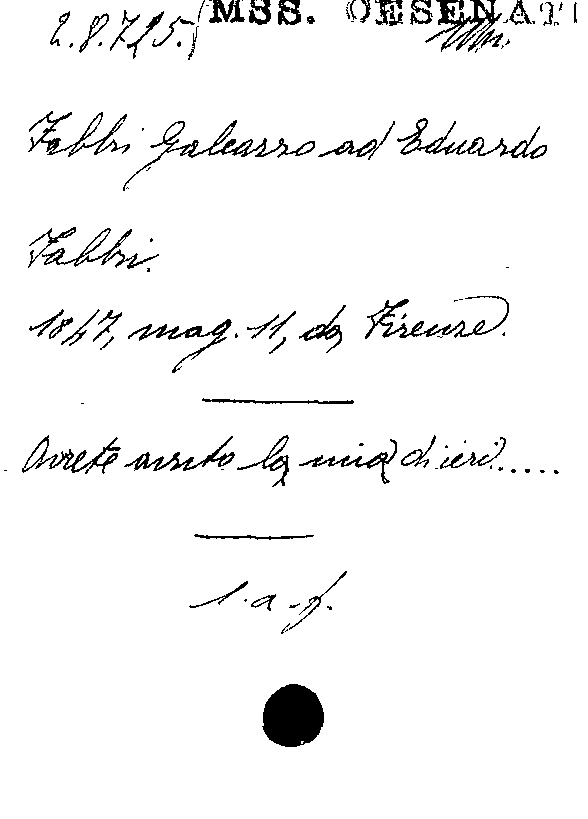 2.8.725. MSS. CESENATI
Fabbri Galeazzo ad Eduardo
Fabbri.
1847, mag. 11, da Firenze.
Avrete avuto la mia di ieri.....
l.a.f.